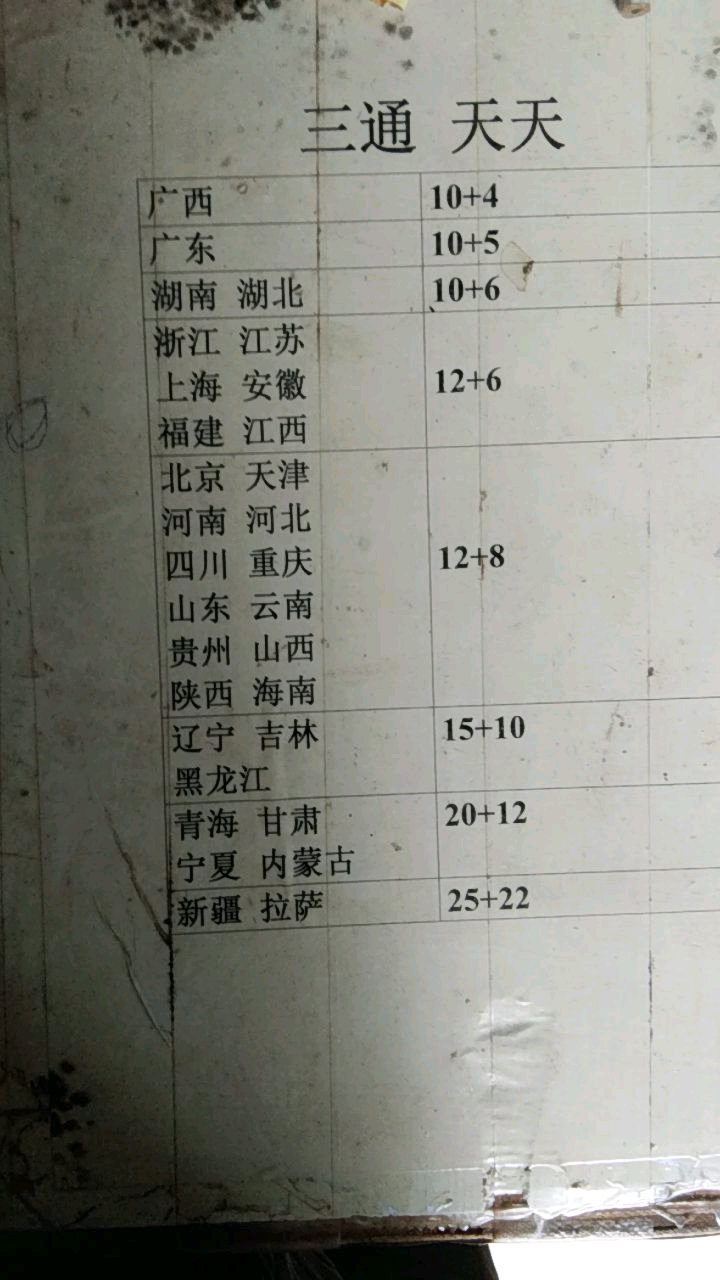 三通 天天
广西 10+4
广东 10+5
湖南 湖北 10+6
浙江 江苏
上海 安徽 12+6
福建 江西
北京 天津
河南 河北
四川 重庆 12+8
山东 云南
贵州 山西
陕西 海南
辽宁 吉林 15+10
黑龙江
青海 甘肃 20+12
宁夏 内蒙古
新疆 拉萨 25+22